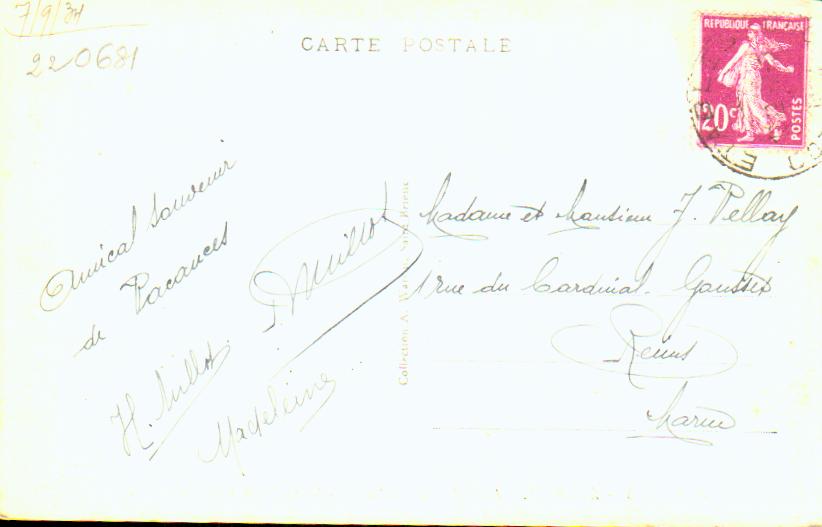 7/9/34
220681
CARTE POSTALE
REPUBLIQUE FRANÇAISE
20c
POSTES
Amical souvenir
de Vacances
H. Millot
Millot
Madeleine
Collection A. Saint-Brieuc
Madame et Monsieur J. Pellay
1 rue du Cardinal Gousset
Reims
Marne